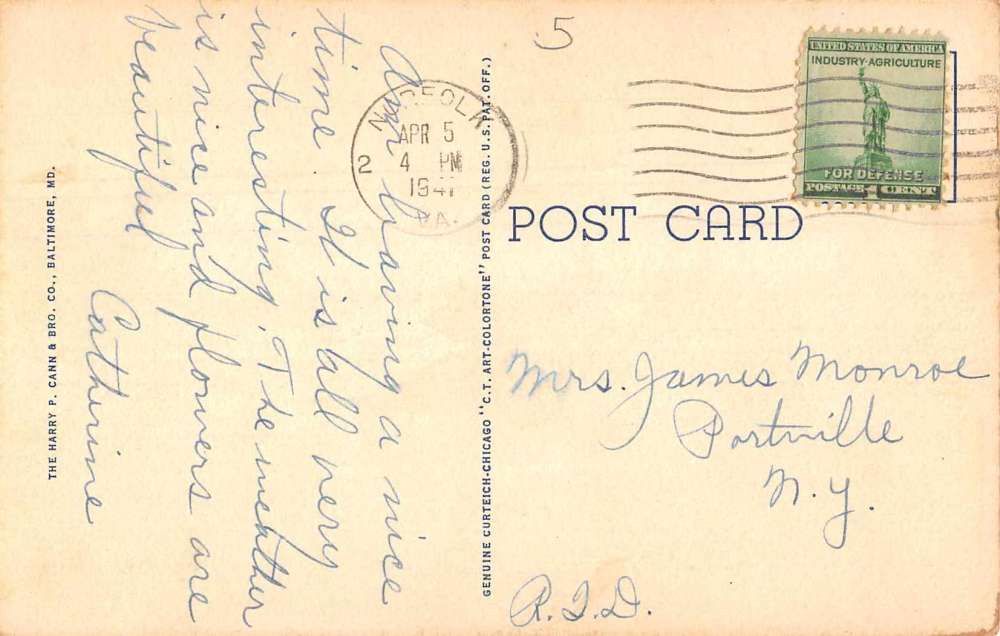 Am having a nice
time. It is all very
interesting. The weather
is nice and flowers are
beautiful
Catherine
THE HARRY P. CANN & BRO. CO., BALTIMORE, MD.
GENUINE CURTEICH-CHICAGO "C.T. ART-COLORTONE" POST CARD (REG. U.S. PAT. OFF.)
5
NORFOLK
APR 5
4 PM
1941
2
VA.
UNITED STATES OF AMERICA
INDUSTRY-AGRICULTURE
FOR DEFENSE
POSTAGE 1 CENT
POST CARD
Mrs. James Monroe
Portville
N.Y.
R.F.D.